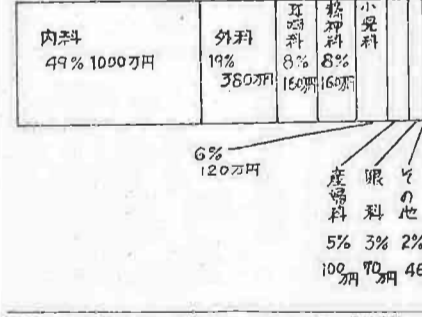 内科
49% 1000万円
外科
19%
380万円
耳鼻科
8%
160万円
精神科
8%
160万円
小児科
6%
120万円
産婦科
5%
100万円
眼科
3%
70万円
その他
2%
46